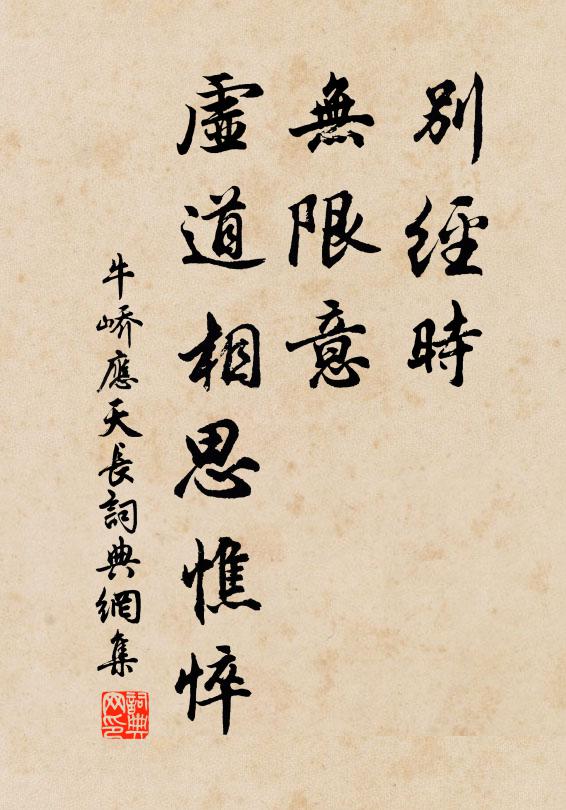 別經時
無限意
虛道相思憔悴
牛嶠應天長詞典網集
詞典網印